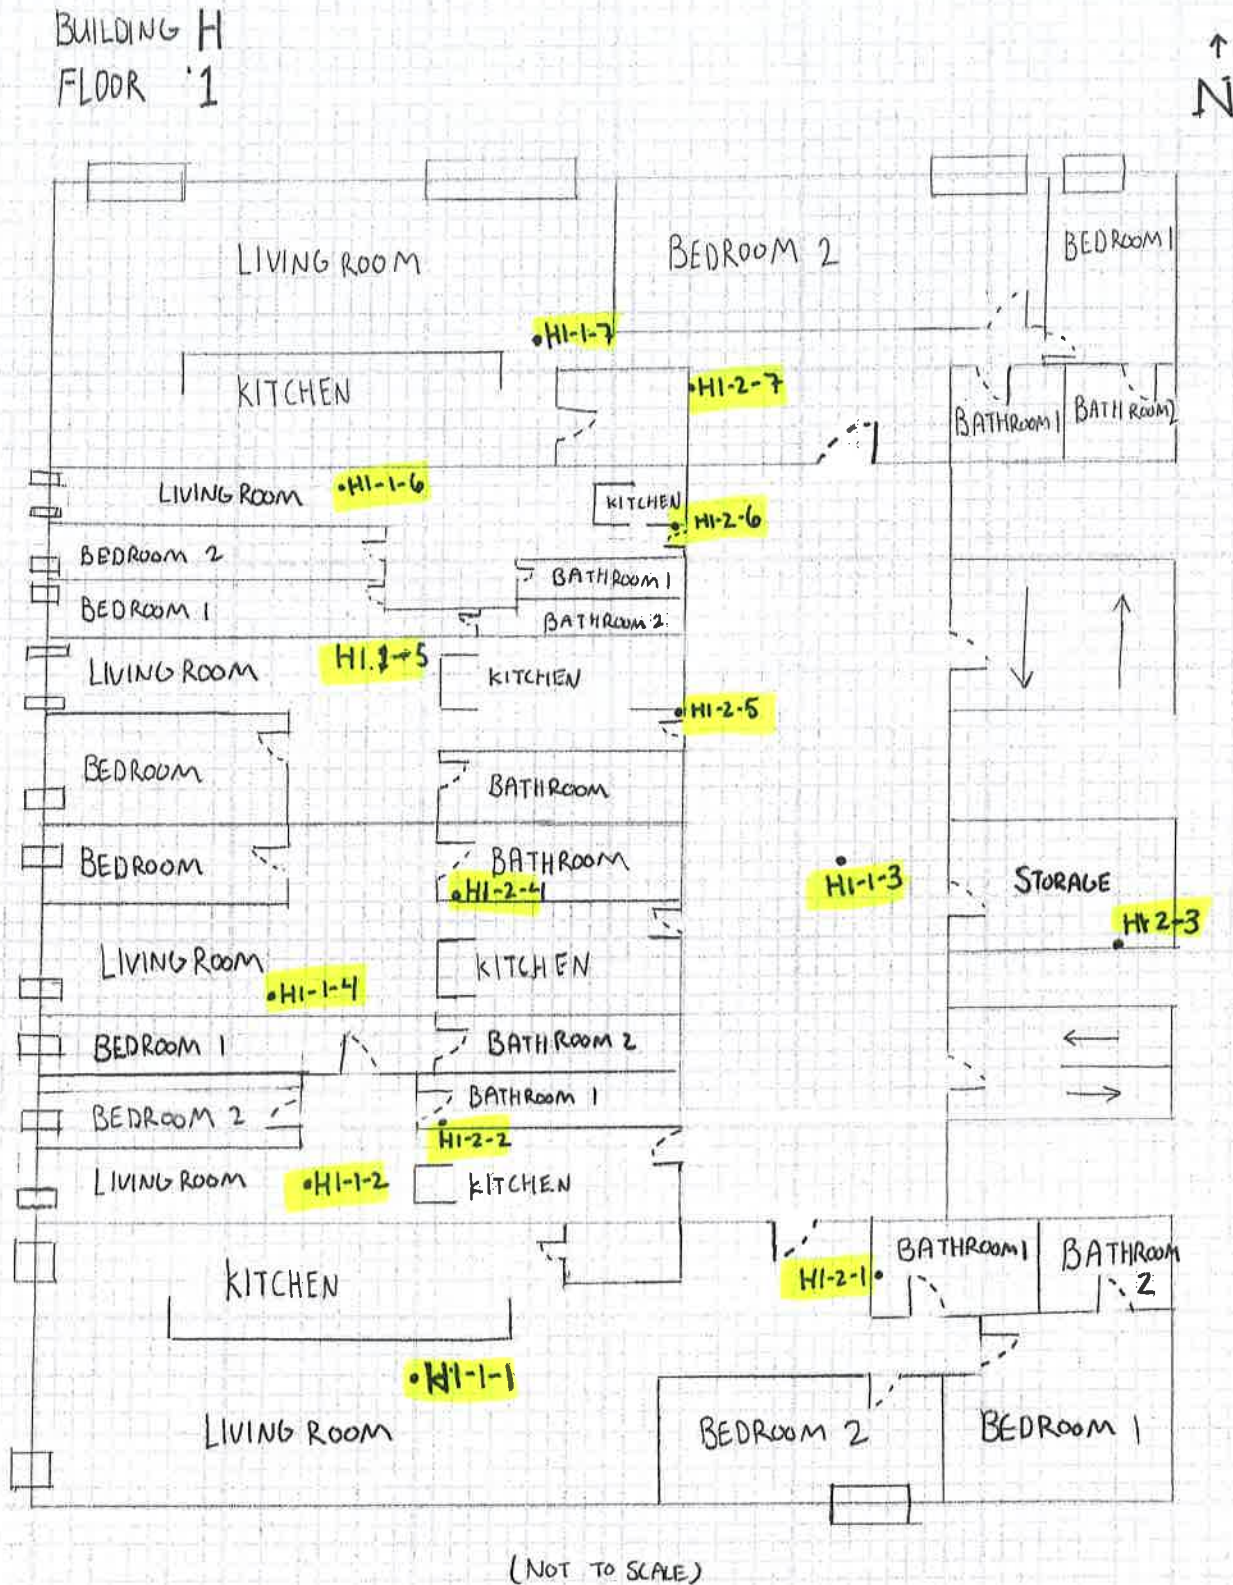 BUILDING H
FLOOR 1
↑
N
LIVING ROOM
BEDROOM 2
BEDROOM 1
H1-1-7
KITCHEN
H1-2-7
BATHROOM 1
BATHROOM 2
LIVING ROOM
H1-1-6
KITCHEN
H1-2-6
BEDROOM 2
BATHROOM 1
BEDROOM 1
BATHROOM 2
LIVING ROOM
H1.1-5
KITCHEN
H1-2-5
BEDROOM
BATHROOM
BEDROOM
BATHROOM
H1-2-4
H1-1-3
STORAGE
H1-2-3
LIVING ROOM
KITCHEN
H1-1-4
BEDROOM 1
BATHROOM 2
BEDROOM 2
BATHROOM 1
H1-2-2
LIVING ROOM
H1-1-2
KITCHEN
KITCHEN
H1-2-1
BATHROOM 1
BATHROOM
2
H1-1-1
LIVING ROOM
BEDROOM 2
BEDROOM 1
(NOT TO SCALE)